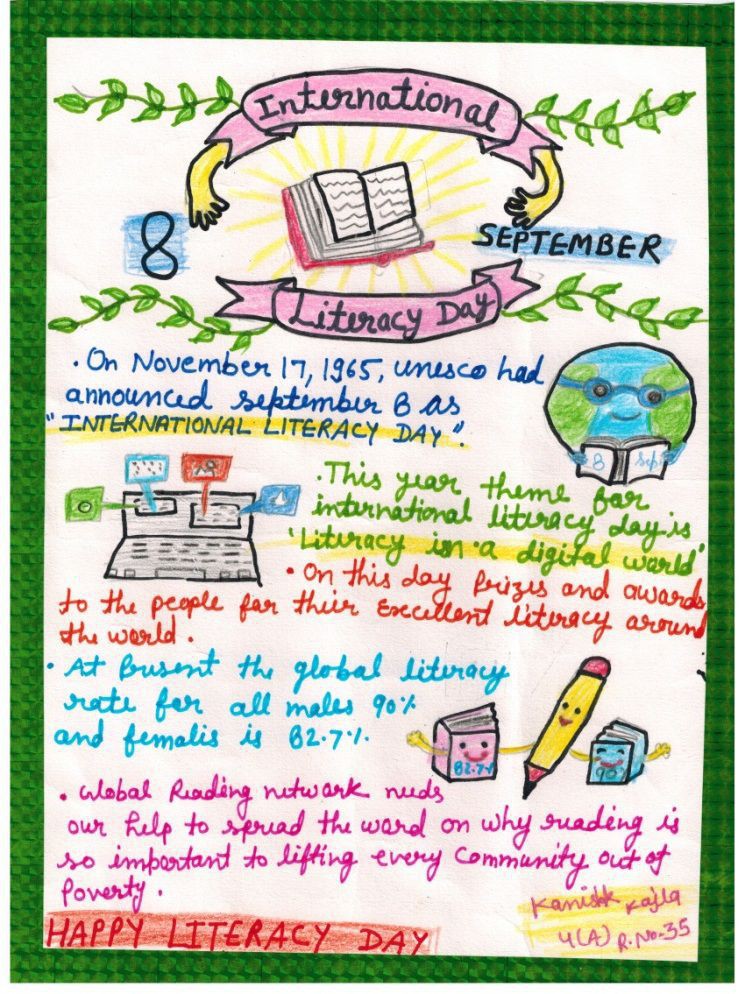 International
8
SEPTEMBER
Literacy Day
• On November 17, 1965, unesco had
announced september 8 as
"INTERNATIONAL LITERACY DAY".
8 Sep
• This year theme for
international literacy day is
'Literacy in a digital world'
• On this day prizes and awards
to the people for their Excellent literacy around
the world.
• At Present the global literacy
rate for all males 90%
and females is 82.7%
82.7%
90%
• Global Reading network needs
our help to spread the word on why reading is
so important to lifting every Community out of
Poverty.
Kanishk Kajla
4(A) R.No-35
HAPPY LITERACY DAY